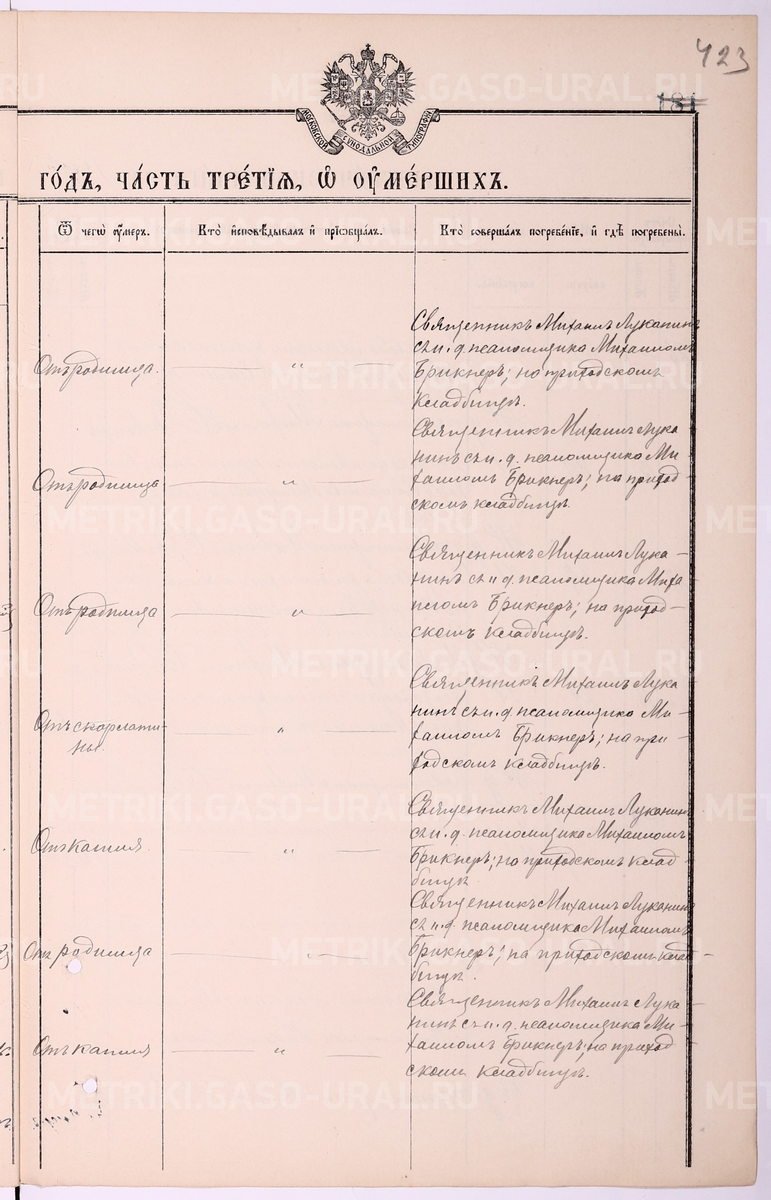 423
181
МОСКОВСКОЙ СУНОДАЛЬНОЙ ТИПОГРАФІИ
ГО́ДЪ, ЧА́СТЬ ТРЕ́ТІЯ, Ѽ ОУМЕ́РШИХЪ.
Ѿ чегѡ̀ оу́меръ.
Кто̀ и҆сповѣ́дывалъ и҆ прїобща́лъ.
Кто̀ соверша́лъ погребе́нїе, и҆ гдѣ̀ погребены̀.
Отъ родимца. — „ —
Священникъ Михаилъ Луканинъ
съ и. д. псаломщика Михаиломъ
Брикнеръ; на приходскомъ
кладбищѣ.
Отъ родимца — „ —
Священникъ Михаилъ Лука
нинъ съ и. д. псаломщика Ми-
хаиломъ Брикнеръ; на приход-
скомъ кладбищѣ.
Отъ родимца — „ —
Священникъ Михаилъ Лука-
нинъ съ и д. псаломщика Миха
иломъ Брикнеръ; на приход-
скомъ кладбищѣ.
Отъ скорлати-
ны. — „ —
Священникъ Михаилъ Лука
нинъ съ и. д. псаломщика Ми-
хаиломъ Брикнеръ; на при-
ходскомъ кладбищѣ.
Отъ кашля. — „ —
Священникъ Михаилъ Луканинъ
съ и. д. псаломщика Михаиломъ
Брикнеръ; на приходскомъ клад-
бищѣ
Отъ родимца — „ —
Священникъ Михаилъ Луканинъ
съ и. д. псаломщика Михаиломъ
Брикнеръ; на приходскомъ клад-
бищѣ.
Отъ кашля — „ —
Священникъ Михаилъ Лука-
нинъ съ и. д. псаломщика Ми-
хаиломъ Брикнеръ; на приход-
скомъ кладбищѣ.
METRIKI.GASO-URAL.RU